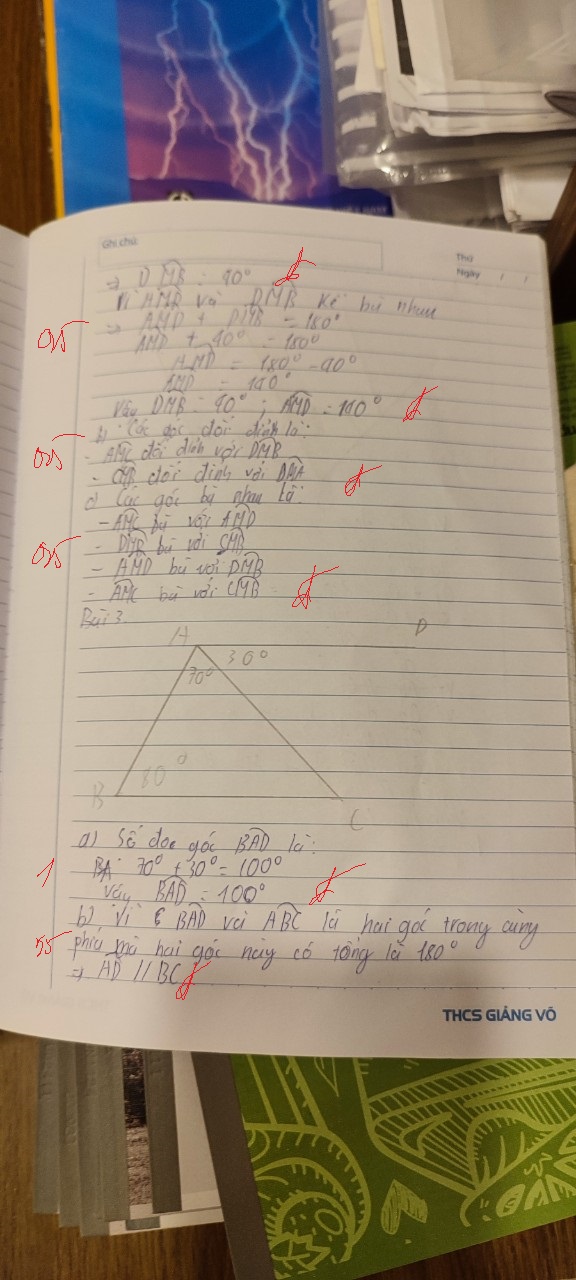 Ghi chú:
Thứ
Ngày / /
=> DMB = 40°
Vì AMD và DMB kề bù nhau
0,5
=> AMD + DMB = 180°
AMD + 40° = 180°
AMD = 180° - 40°
AMD = 140°
Vậy DMB = 40° ; AMD = 140°
b) Các góc đối đỉnh là:
0,5
- AMC đối đỉnh với DMB
- CMB đối đỉnh với DMA
c) Các góc bù nhau là:
- AMC bù với AMD
0,5
- DMB bù với CMB
- AMD bù với DMB
- AMC bù với CMB
Bài 3.
A
D
30°
70°
80°
B
C
a) Số đo góc BAD là:
BA 70° + 30° = 100°
1
Vậy BAD = 100°
b) Vì BAD và ABC là hai góc trong cùng
phía mà hai góc này có tổng là 180°
=> AD // BC
THCS GIẢNG VÕ